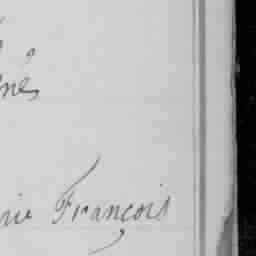 né,
rie François